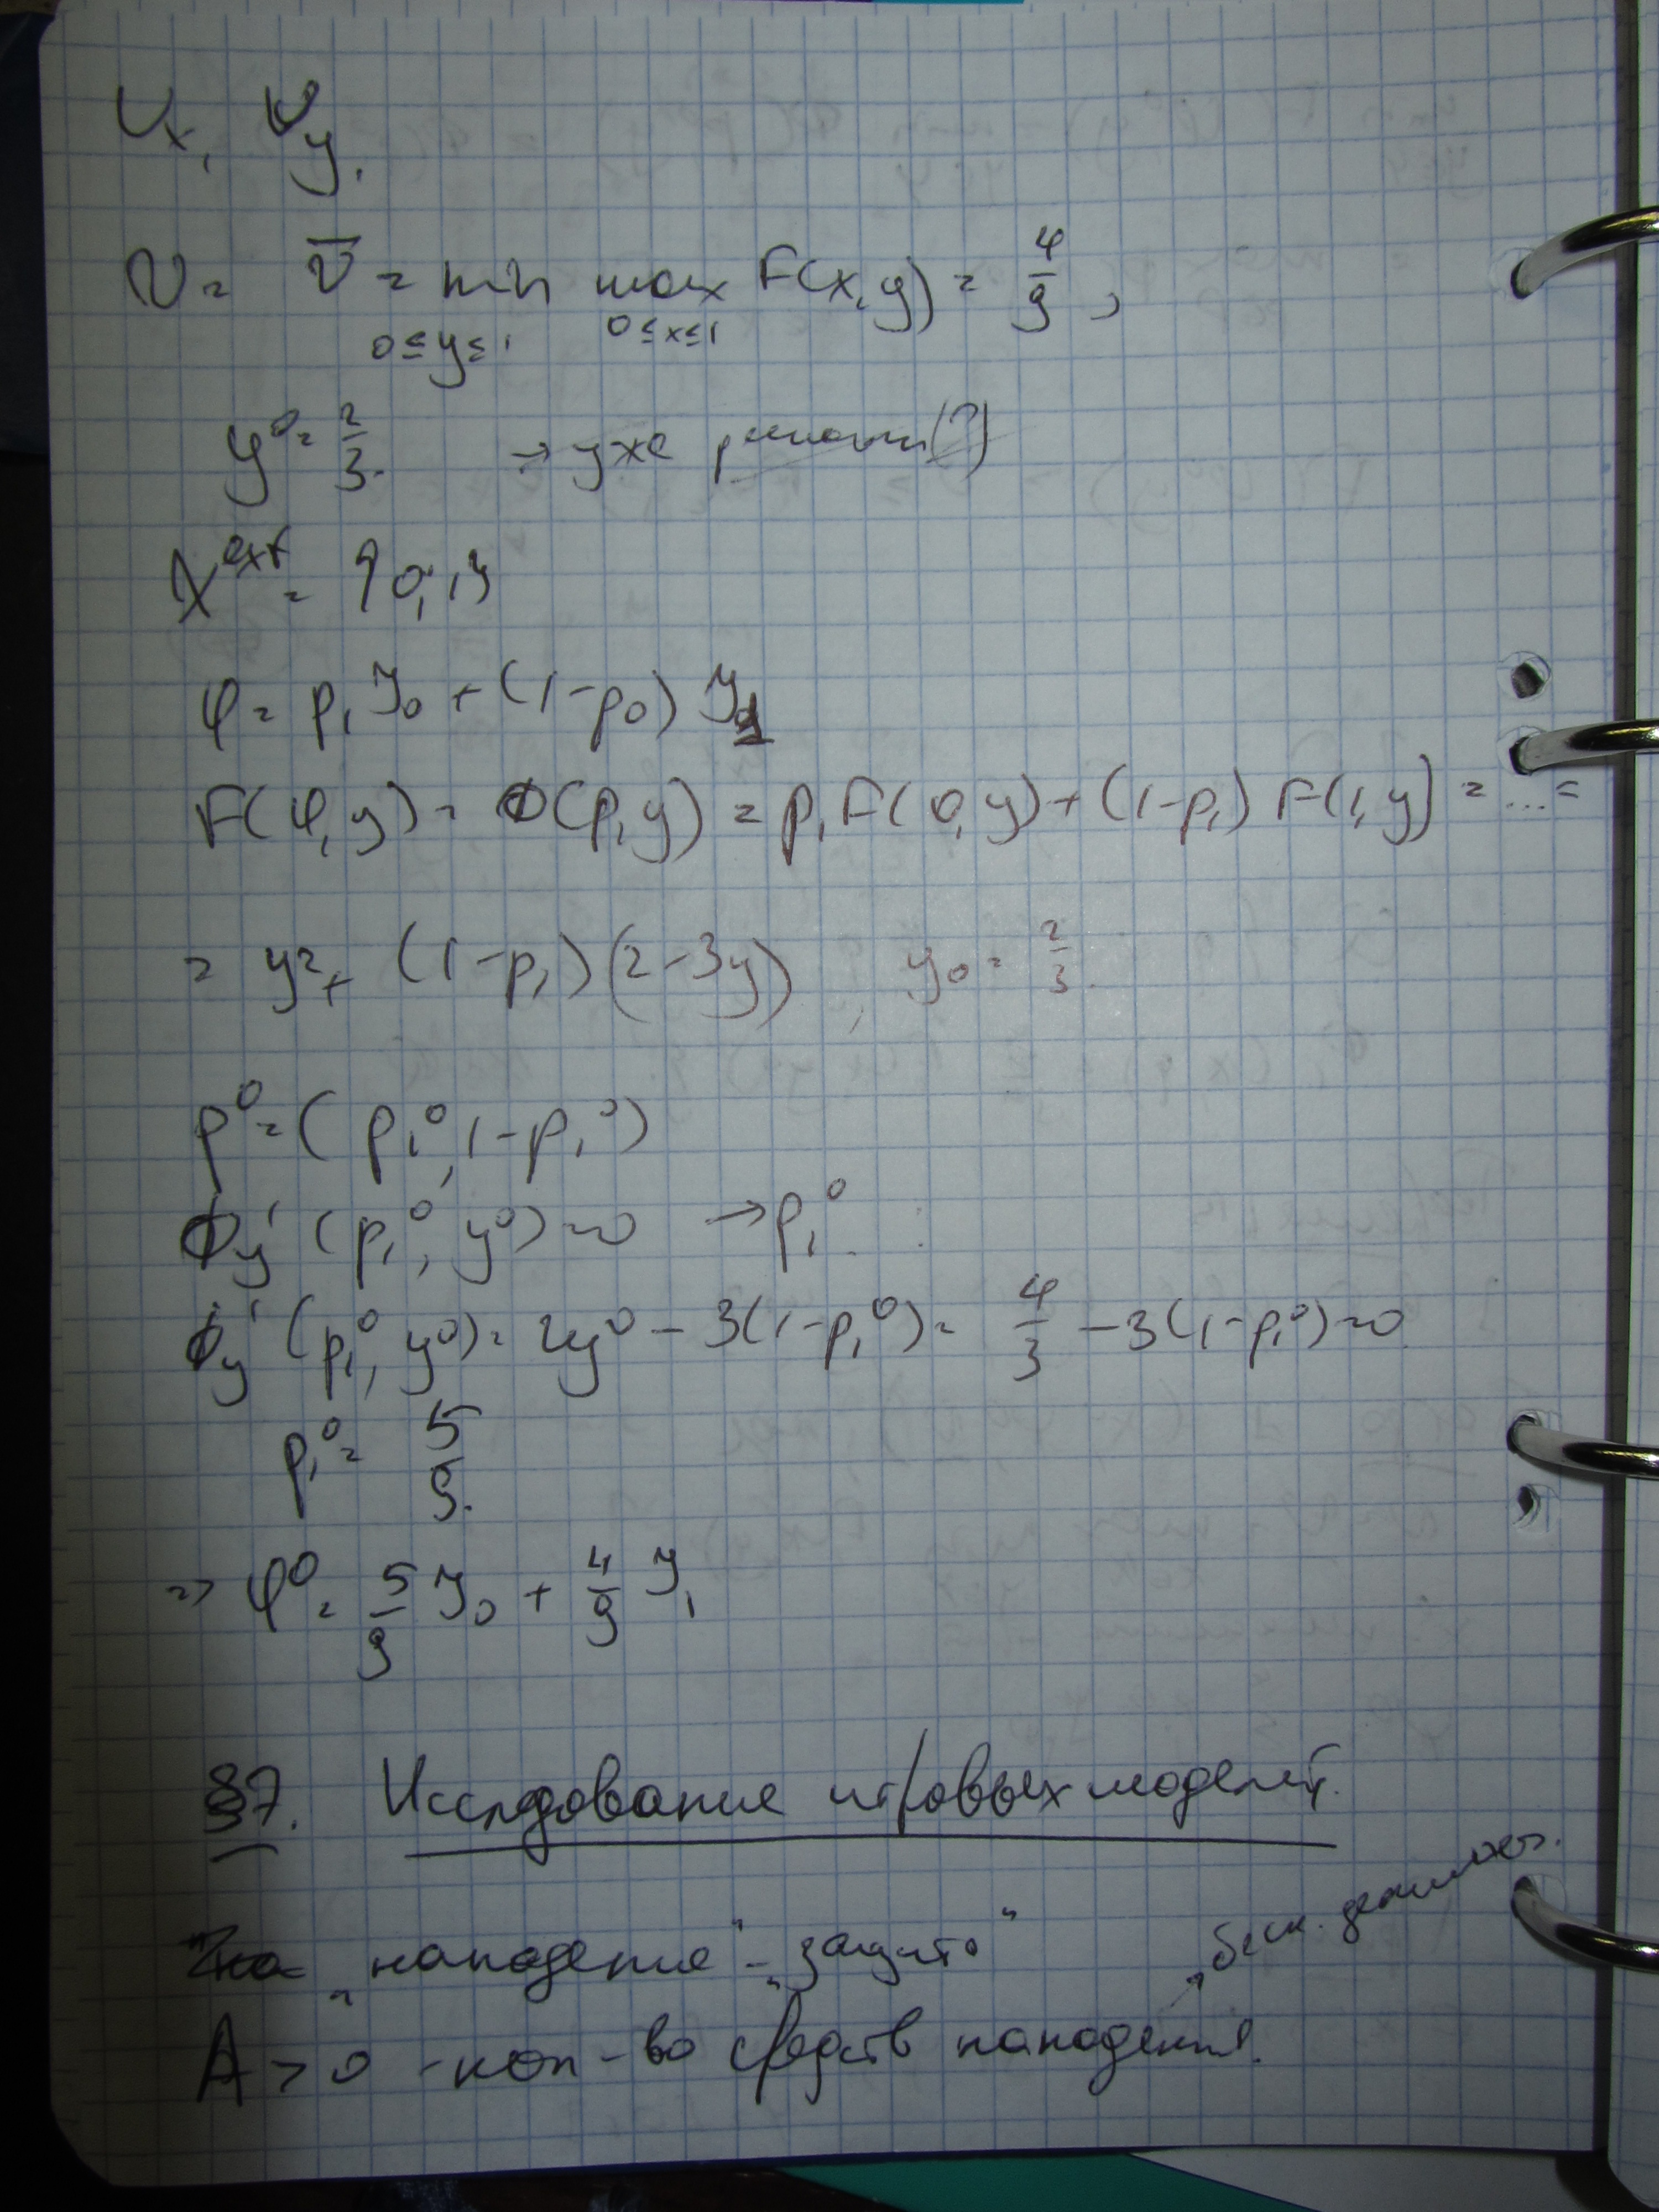 ∪x, ∪y.
v = v̄ = min max F(x,y) = 4/9,
0≤y≤1 0≤x≤1
y⁰ = 2/3. → уже решали(?)
X^ext = {0,1}
φ = p₁ I₀ + (1-p₀) I₁
F(φ,y) = Φ(p,y) = p₁F(0,y) + (1-p₁) F(1,y) = ... =
= y² + (1-p₁)(2-3y), y₀ = 2/3.
p⁰ = (p₁⁰, 1-p₁⁰)
Φy' (p₁⁰, y⁰) = 0 → p₁⁰.
Φy' (p₁⁰, y⁰) = 2y⁰ - 3(1-p₁⁰) = 4/3 - 3(1-p₁⁰) = 0
p₁⁰ = 5/9.
=> φ⁰ = 5/9 I₀ + 4/9 I₁
§7. Исследование игровых моделей.
"нападение" - "защита"
A > 0 - кол-во средств нападения. → беск. делимост.